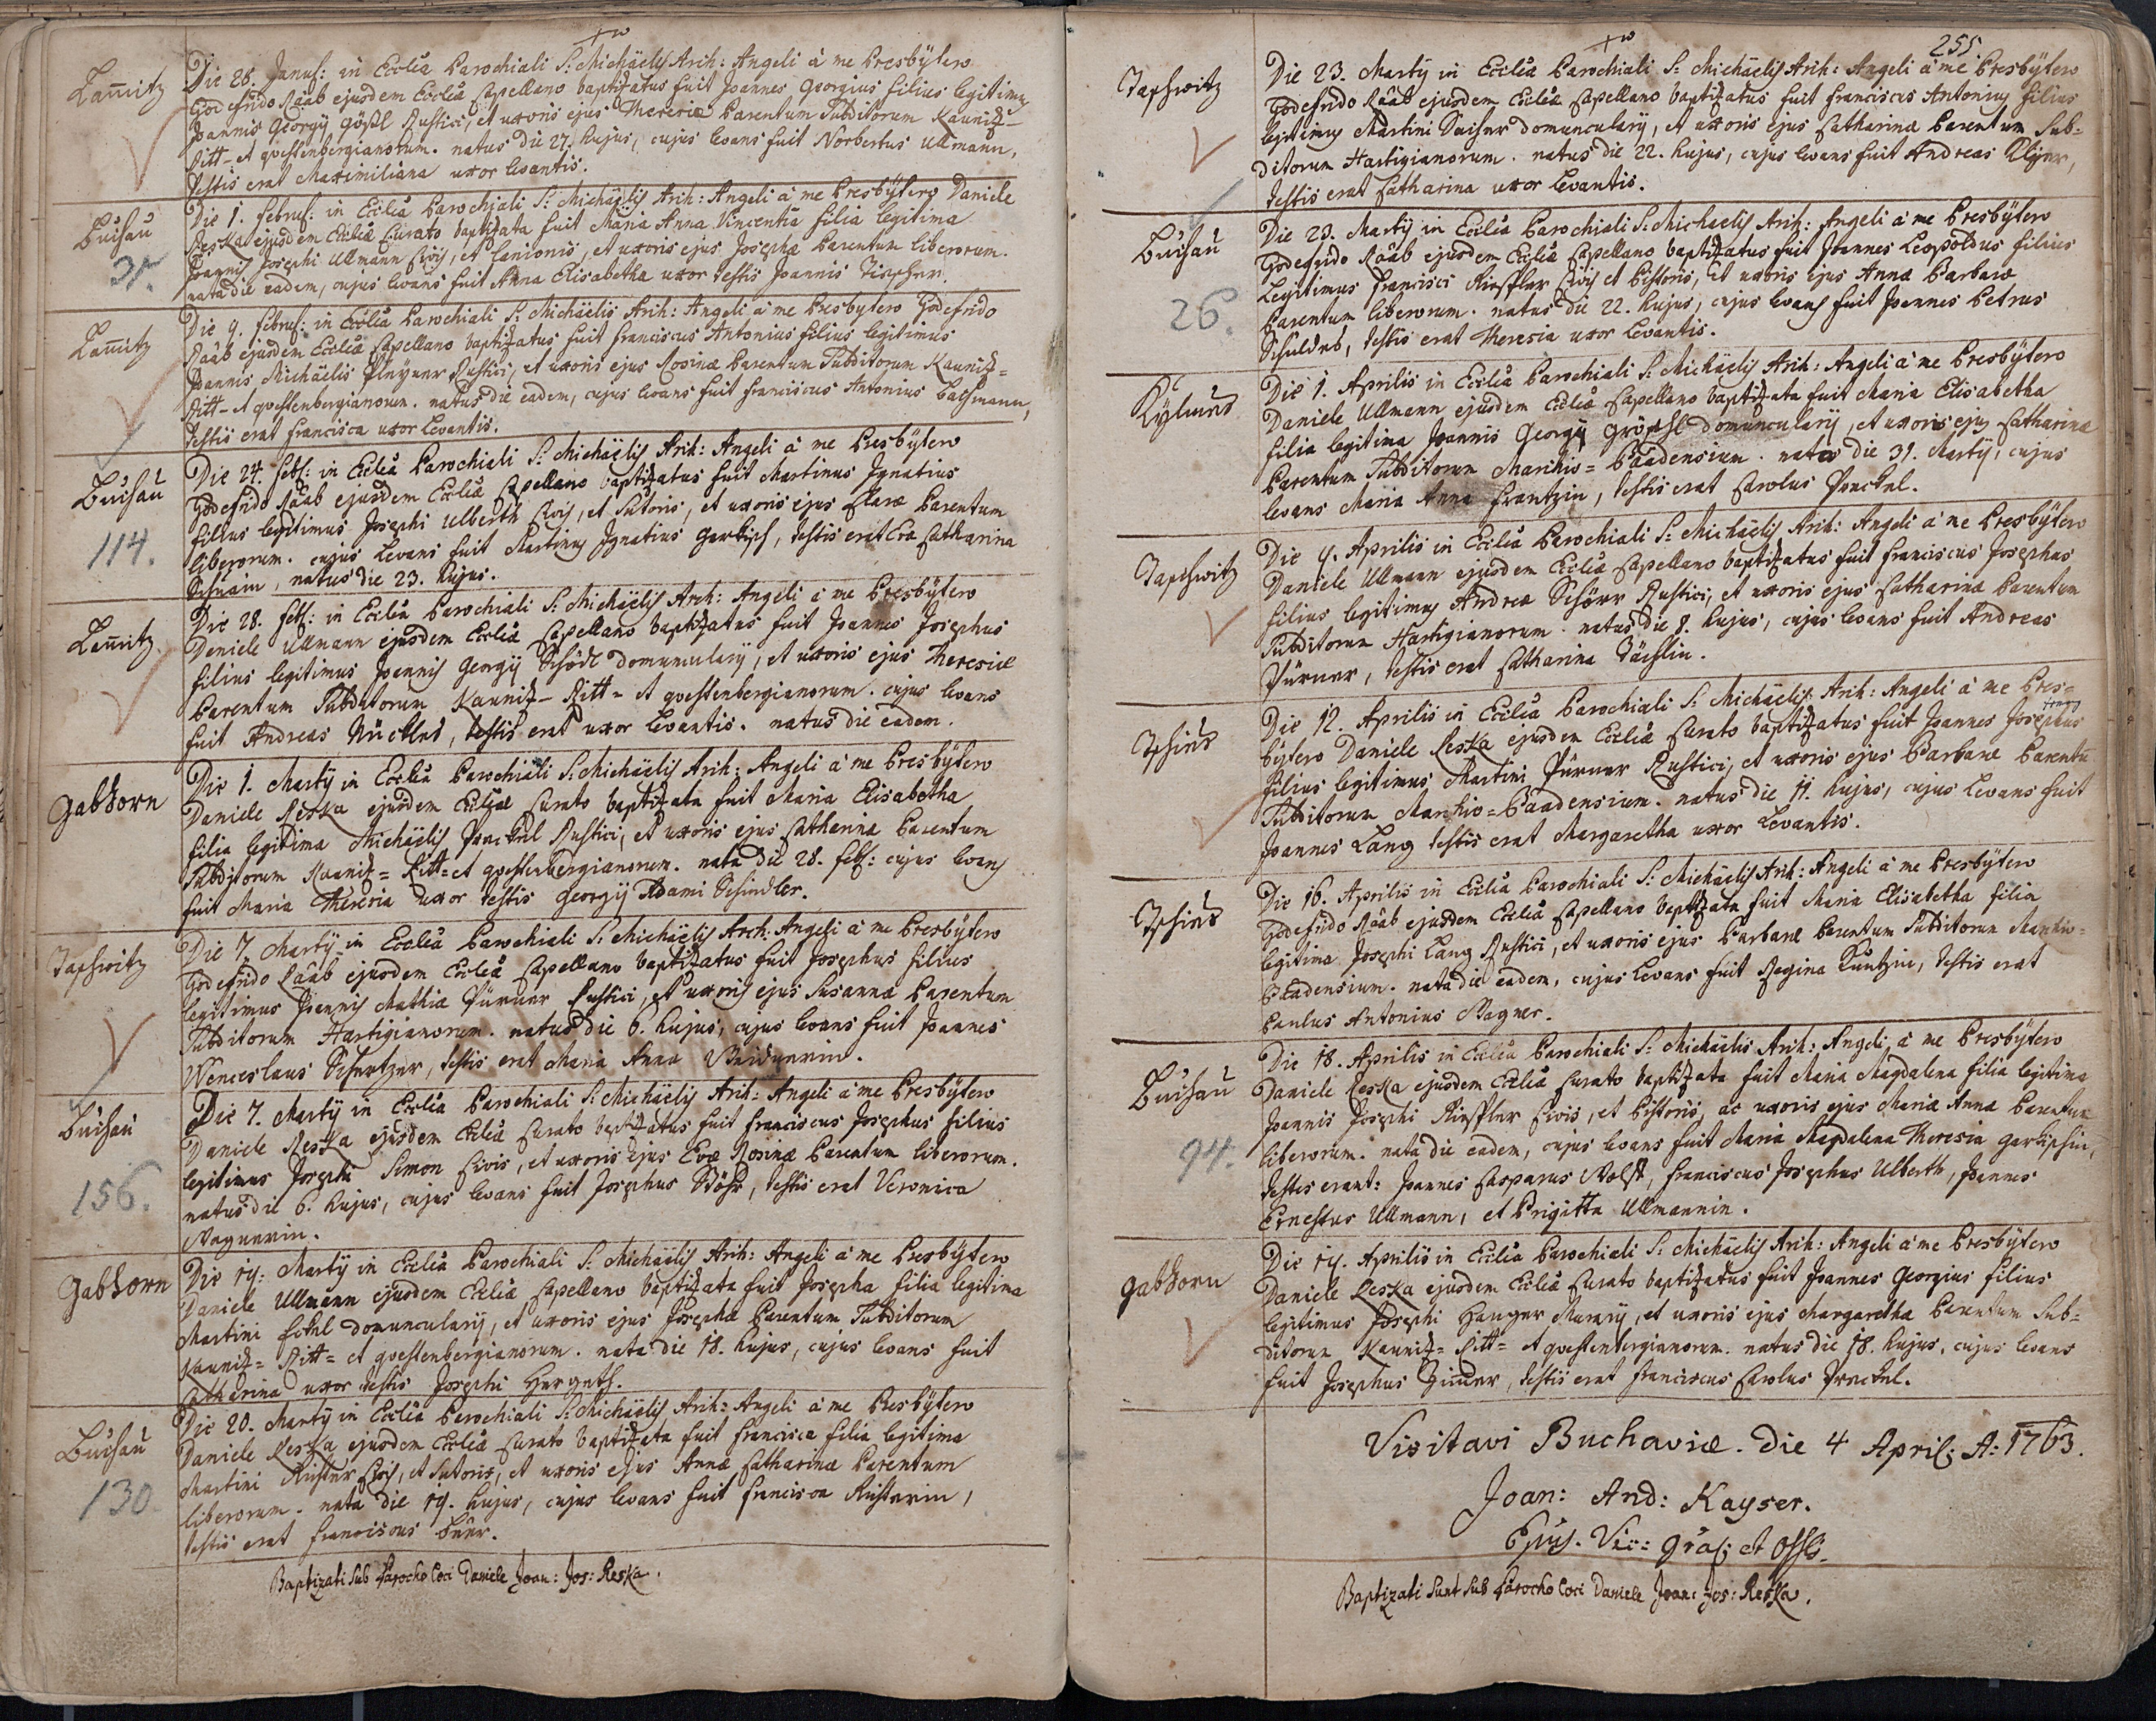 Lam̄itz
Die 28. Januſ: in Ecclia Parochiali S: Michaëlis Arch: Angeli à me Presbÿtero
Godefrido Raab ejusdem Eccliæ Capellano baptizatus fuit Joannes Georgius filius legitimus
Joannis Georgÿ Rustici, et uxoris ejus Theresiæ Parentum Subditorum Kaunitz-
Ritt- et questenbergianorum. natus die 27. hujus, cujus levans fuit Norbertus Ullmann,
testis erat Maximiliana uxor levantis.
Buchau
31.
Die 1. Februſ: in Ecclia Parochiali S: Michaëlis Arch: Angeli à me Presbÿtero Daniele
Reska ejusdem Eccliæ Curato baptizata fuit Maria Anna Vincentia filia legitima
Joannis Josephi Ullmann Civis, et Lanionis, et uxoris ejus Josephæ Parentum liberorum.
nata die eadem, cujus levans fuit Anna Elisabetha uxor testis Joannis
Lam̄itz
Die 9. Februſ: in Ecclia Parochiali S: Michaëlis Arch: Angeli à me Presbytero Godefrido
Raab ejusdem Eccliæ Capellano baptizatus fuit Franciscus Antonius filius legitimus
Joannis Michaëlis Rustici, et uxoris ejus Rosinæ Parentum Subditorum Kaunitz=
Ritt- et questenbergianorum. natus die eadem, cujus levans fuit Franciscus Antonius Bachmann,
testis erat Francisca uxor Levantis.
Buchau
114.
Die 24. Feb: in Ecclia Parochiali S: Michaëlis Arch: Angeli à me Presbÿtero
Godefrido Raab ejusdem Eccliæ Capellano baptizatus fuit Martinus Ignatius
filius legitimus Josephi Ulberth Civis, et Sutoris, et uxoris ejus Claræ Parentum
liberorum. cujus Levans fuit Martinus Ignatius Garkisch, testis erat Eva Catharina
natus die 23. hujus.
Lam̄itz
Die 28. Feb: in Ecclia Parochiali S: Michaëlis Arch: Angeli à me Presbÿtero
Daniele Ullmann ejusdem Eccliæ Capellano baptizatus fuit Joannes Josephus
filius legitimus Joannis Georgÿ Schödl domuncularÿ, et uxoris ejus Theresiæ
Parentum Subditorum Kaunitz- Ritt- et questenbergianorum. cujus levans
fuit Andreas testis erat uxor levantis. natus die eadem.
Gabhorn
Die 1. Martÿ in Ecclia Parochiali S: Michaëlis Arch: Angeli à me Presbÿtero
Daniele Reska ejusdem Eccliæ Curato baptizata fuit Maria Elisabetha
filia legitima Michaëlis Prockel Rustici, et uxoris ejus Catharinæ Parentum
Subditorum Kaunitz= Ritt= et questenbergianorum. nata die 28. Feb: cujus levans
fuit Maria Theresia uxor testis Georgÿ Adami Schindler.
Tasch̄witz
Die 7. Martÿ in Ecclia Parochiali S: Michaëlis Arch: Angeli à me Presbÿtero
Godefrido Raab ejusdem Eccliæ Capellano baptizatus fuit Josephus filius
legitimus Joannis Mathiæ Pürner Rustici, et uxoris ejus Susannæ Parentum
Subditorum Hartigianorum. natus die 6. hujus, cujus levans fuit Joannes
Wenceslaus testis erat Maria Anna
Buchau
156.
Die 7. Martÿ in Ecclia Parochiali S: Michaëlis Arch: Angeli à me Presbÿtero
Daniele Reska ejusdem Eccliæ Curato baptizatus fuit Franciscus Josephus filius
legitimus Josephi Simon Civis, et uxoris ejus Evæ Rosinæ Parentum liberorum.
natus die 6. hujus, cujus levans fuit Josephus Böhr, testis erat Veronica
Wagnerin.
Gabhorn
Die 19. Martÿ in Ecclia Parochiali S: Michaëlis Arch: Angeli à me Presbÿtero
Daniele Ullmann ejusdem Eccliæ Capellano baptizata fuit Josepha filia legitima
Martini domuncularÿ, et uxoris ejus Josephæ Parentum Subditorum
Kaunitz= Ritt= et questenbergianorum. nata die 18. hujus, cujus levans fuit
Catharina uxor testis Josephi Hergeth.
Buchau
130
Die 20. Martÿ in Ecclia Parochiali S: Michaëlis Arch: Angeli à me Presbÿtero
Daniele Reska ejusdem Eccliæ Curato baptizata fuit Francisca filia legitima
Martini Richter Civis, et Sutoris, et uxoris ejus Annæ Catharinæ Parentum
liberorum. nata die 19. hujus, cujus levans fuit Francisca Richterin,
testis erat Franciscus
Baptizati Sub Parocho loci Daniele Joan: Jos: Reska.
255.
Taschwitz
Die 23. Martÿ in Ecclia Parochiali S: Michaëlis Arch: Angeli à me Presbÿtero
Godefrido Raab ejusdem Eccliæ Capellano baptizatus fuit Franciscus Antonius filius
legitimus Martini domuncularÿ, et uxoris ejus Catharinæ Parentum Sub=
ditorum Hartigianorum. natus die 22. hujus, cujus levans fuit Andreas
testis erat Catharina uxor levantis.
Buchau
26.
Die 23. Martÿ in Ecclia Parochiali S: Michaëlis Arch: Angeli à me Presbÿtero
Godefrido Raab ejusdem Eccliæ Capellano baptizatus fuit Joannes Leopoldus filius
Legitimus Francisci Civis et Pistoris, et uxoris ejus Annæ Barbaræ
Parentum liberorum. natus die 22. hujus, cujus levans fuit Joannes Petrus
testis erat Theresia uxor Levantis.
Die 1. Aprilis in Ecclia Parochiali S: Michaëlis Arch: Angeli à me Presbÿtero
Daniele Ullmann ejusdem Eccliæ Capellano baptizata fuit Maria Elisabetha
filia legitima Joannis Georgÿ Gröschl domuncularÿ, et uxoris ejus Catharinæ
Parentum Subditorum Marchio= Baadensium. nata die 31. Martÿ, cujus
levans Maria Anna Frantzin, testis erat Carolus Prockel.
Taschwitz
Die 9. Aprilis in Ecclia Parochiali S: Michaëlis Arch: Angeli à me Presbÿtero
Daniele Ullmann ejusdem Eccliæ Capellano baptizatus fuit Franciscus Josephus
filius legitimus Andreæ Rustici, et uxoris ejus Catharinæ Parentum
Subditorum Hartigianorum. natus die 8. hujus, cujus levans fuit Andreas
Pürner, testis erat Catharina
Die 12. Aprilis in Ecclia Parochiali S: Michaëlis Arch: Angeli à me Pres=
bÿtero Daniele Reska ejusdem Eccliæ Curato baptizatus fuit Joannes Josephus
filius legitimus Martini Pürner Rustici, et uxoris ejus Barbaræ Parentū
Subditorum Marchio=Baadensium. natus die 11. hujus, cujus Levans fuit
Joannes Lang testis erat Margaretha uxor Levantis.
Die 16. Aprilis in Ecclia Parochiali S: Michaëlis Arch: Angeli à me Presbÿtero
Godefrido Raab ejusdem Eccliæ Capellano baptizata fuit Maria Elisabetha filia
legitima Josephi Lang Rustici, et uxoris ejus Barbaræ Parentum Subditorum Marchio=
Baadensium. nata die eadem, cujus Levans fuit Regina testis erat
Paulus Antonius Wagner.
Buchau
94.
Die 18. Aprilis in Ecclia Parochiali S: Michaëlis Arch: Angeli à me Presbÿtero
Daniele Reska ejusdem Eccliæ Curato baptizata fuit Maria Magdalena filia legitima
Joannis Josephi Civis, et Pistoris, ac uxoris ejus Mariæ Annæ Parentum
liberorum. nata die eadem, cujus levans fuit Maria Magdalena Theresia Garkischin,
testes erant: Joannes Casparus Wolf, Franciscus Josephus Ulberth, Joannes
Ernestus Ullmann, et Brigitta Ullmannin.
Gabhorn
Die 19. Aprilis in Ecclia Parochiali S: Michaëlis Arch: Angeli à me Presbÿtero
Daniele Reska ejusdem Eccliæ Curato baptizatus fuit Joannes Georgius filius
legitimus Josephi Murarÿ, et uxoris ejus Margaretha Parentum Sub=
ditorum Kaunitz= Ritt= et questenbergianorum. natus die 18. hujus, cujus levans
fuit Josephus testis erat Franciscus Carolus Prockel.
Visitavi Buchaviæ. die 4 April; A: 1763.
Joan: And: Kayser.
Ejus. Vic: et Offlis.
Baptizati Sunt Sub Parocho loci Daniele Joan: Jos: Reska.